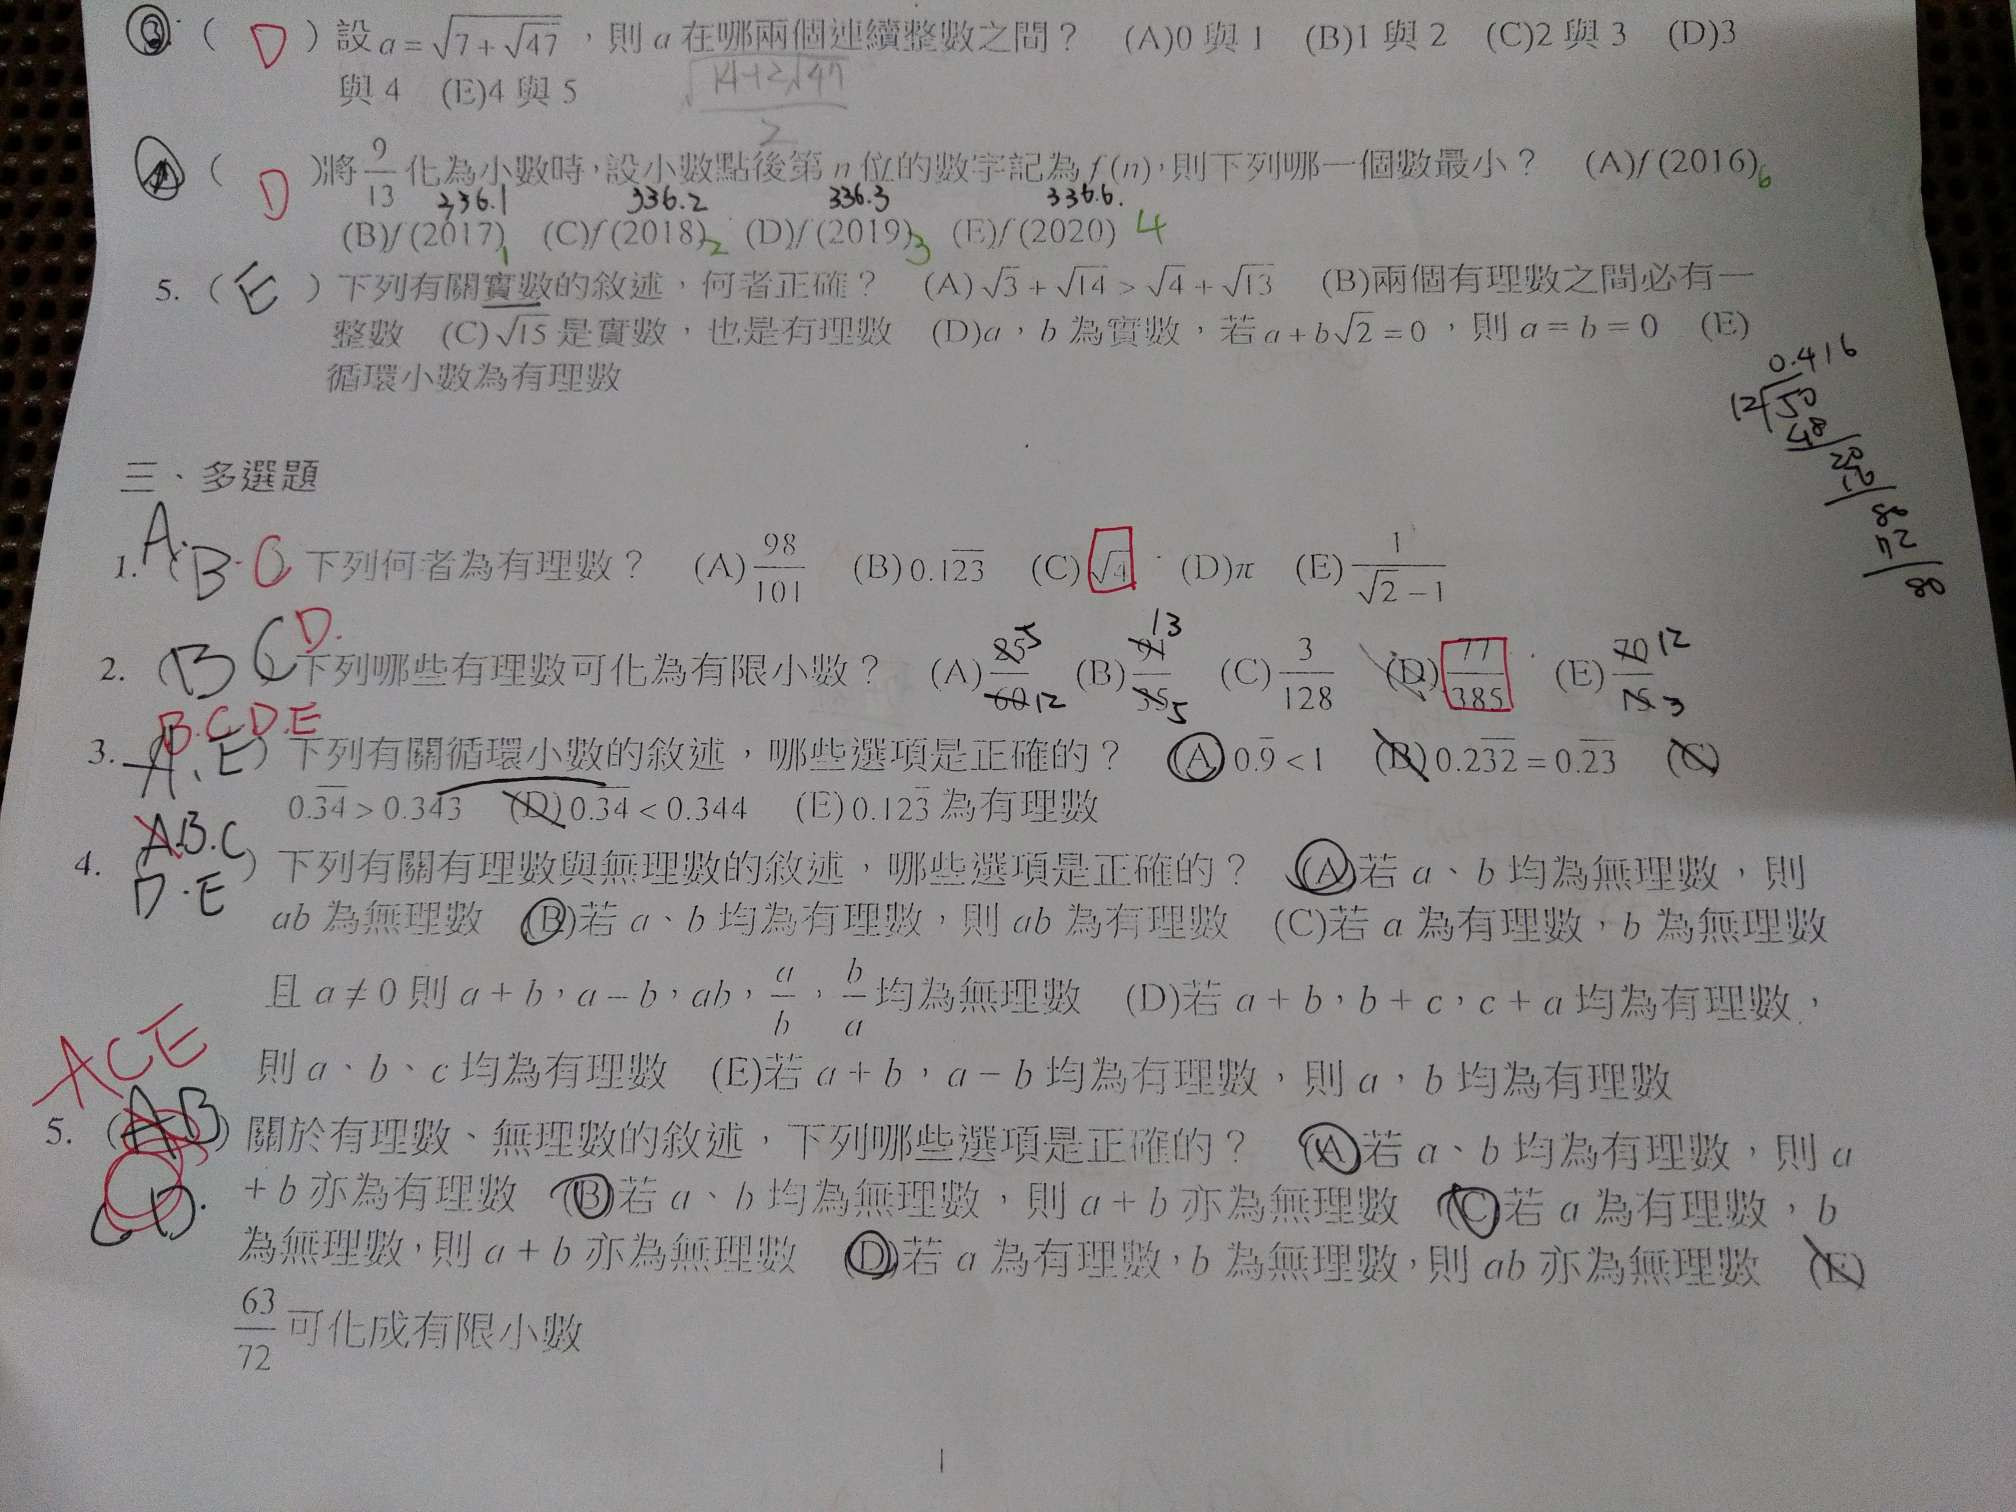 3. ( D ) 設 a = √(7 + √47) ，則 a 在哪兩個連續整數之間？ (A)0 與 1 (B)1 與 2 (C)2 與 3 (D)3
與 4 (E)4 與 5
√(14+2√47)
2
( D )將 9/13 化為小數時，設小數點後第 n 位的數字記為 f (n)，則下列哪一個數最小？ (A)f (2016) 6
336.1 336.2 336.3 336.6.
(B)f (2017) 1 (C)f (2018) 2 (D)f (2019) 3 (E)f (2020) 4
5. ( E ) 下列有關實數的敘述，何者正確？ (A) √3 + √14 > √4 + √13 (B)兩個有理數之間必有一
整數 (C) √15 是實數，也是有理數 (D)a，b 為實數，若 a + b√2 = 0 ，則 a = b = 0 (E)
循環小數為有理數
0.416
12 50
48
20
80
72
80
三、多選題
1. A.B.C 下列何者為有理數？ (A) 98/101 (B) 0.12̅3̅ (C) √4 (D)π (E) 1/(√2 − 1)
D.
2. ( B C 下列哪些有理數可化為有限小數？ (A) 85/60 5 12 (B) 91/35 13 5 (C) 3/128 (D) 77/385 (E) 70/15 12 3
B.C.D.E
3. ( A.E ) 下列有關循環小數的敘述，哪些選項是正確的？ (A) 0.9̅ < 1 (B) 0.23̅2̅ = 0.2̅3̅ (C)
0.3̅4̅ > 0.343 (D) 0.3̅4̅ < 0.344 (E) 0.123̅ 為有理數
A.B.C
4. ( ) 下列有關有理數與無理數的敘述，哪些選項是正確的？ (A)若 a、b 均為無理數，則
D.E
ab 為無理數 (B)若 a、b 均為有理數，則 ab 為有理數 (C)若 a 為有理數，b 為無理數
且 a ≠ 0 則 a + b，a − b，ab，a/b，b/a 均為無理數 (D)若 a + b，b + c，c + a 均為有理數，
則 a、b、c 均為有理數 (E)若 a + b，a − b 均為有理數，則 a，b 均為有理數
ACE
5. ( AB ) 關於有理數、無理數的敘述，下列哪些選項是正確的？ (A)若 a、b 均為有理數，則 a
C D.
+ b 亦為有理數 (B)若 a、b 均為無理數，則 a + b 亦為無理數 (C)若 a 為有理數，b
為無理數，則 a + b 亦為無理數 (D)若 a 為有理數，b 為無理數，則 ab 亦為無理數 (E)
63/72 可化成有限小數
1